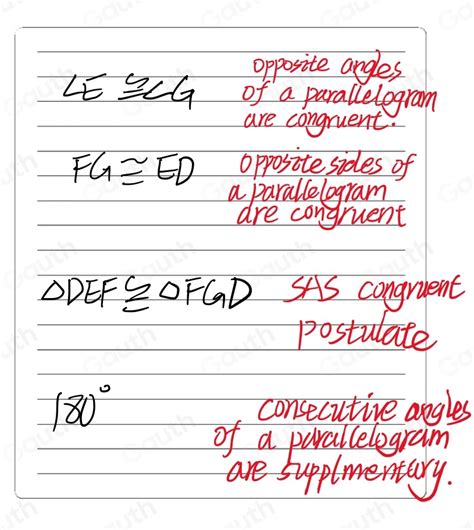 opposite angles
∠E ≅ ∠G of a parallelogram
are congruent.
FG ≅ ED opposite sides of
a parallelogram
are congruent
△DEF ≅ △FGD SAS congruent
postulate
180° consecutive angles
of a parallelogram
are supplmentary.
Gauth